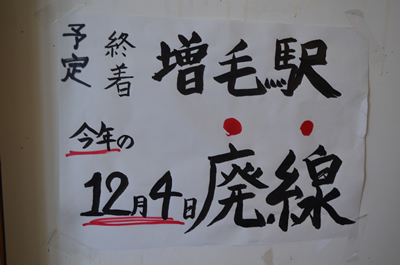 予定
終着
増毛駅
今年の
12月4日
廃線